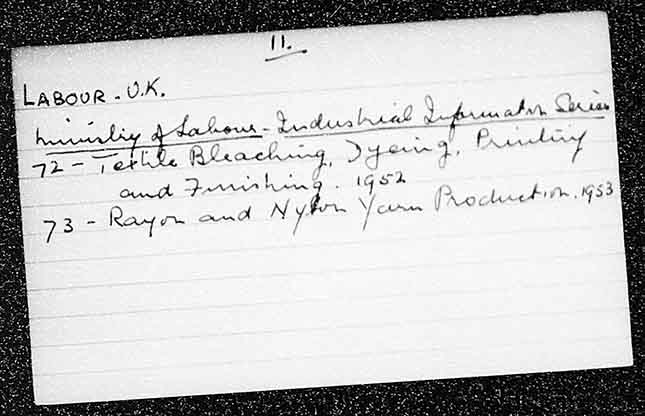 11.
LABOUR - U.K.
Ministry of Labour - Industrial Information Series
72 - Textile Bleaching, Dyeing, Printing
and Finishing. 1952
73 - Rayon and Nylon Yarn Production. 1953